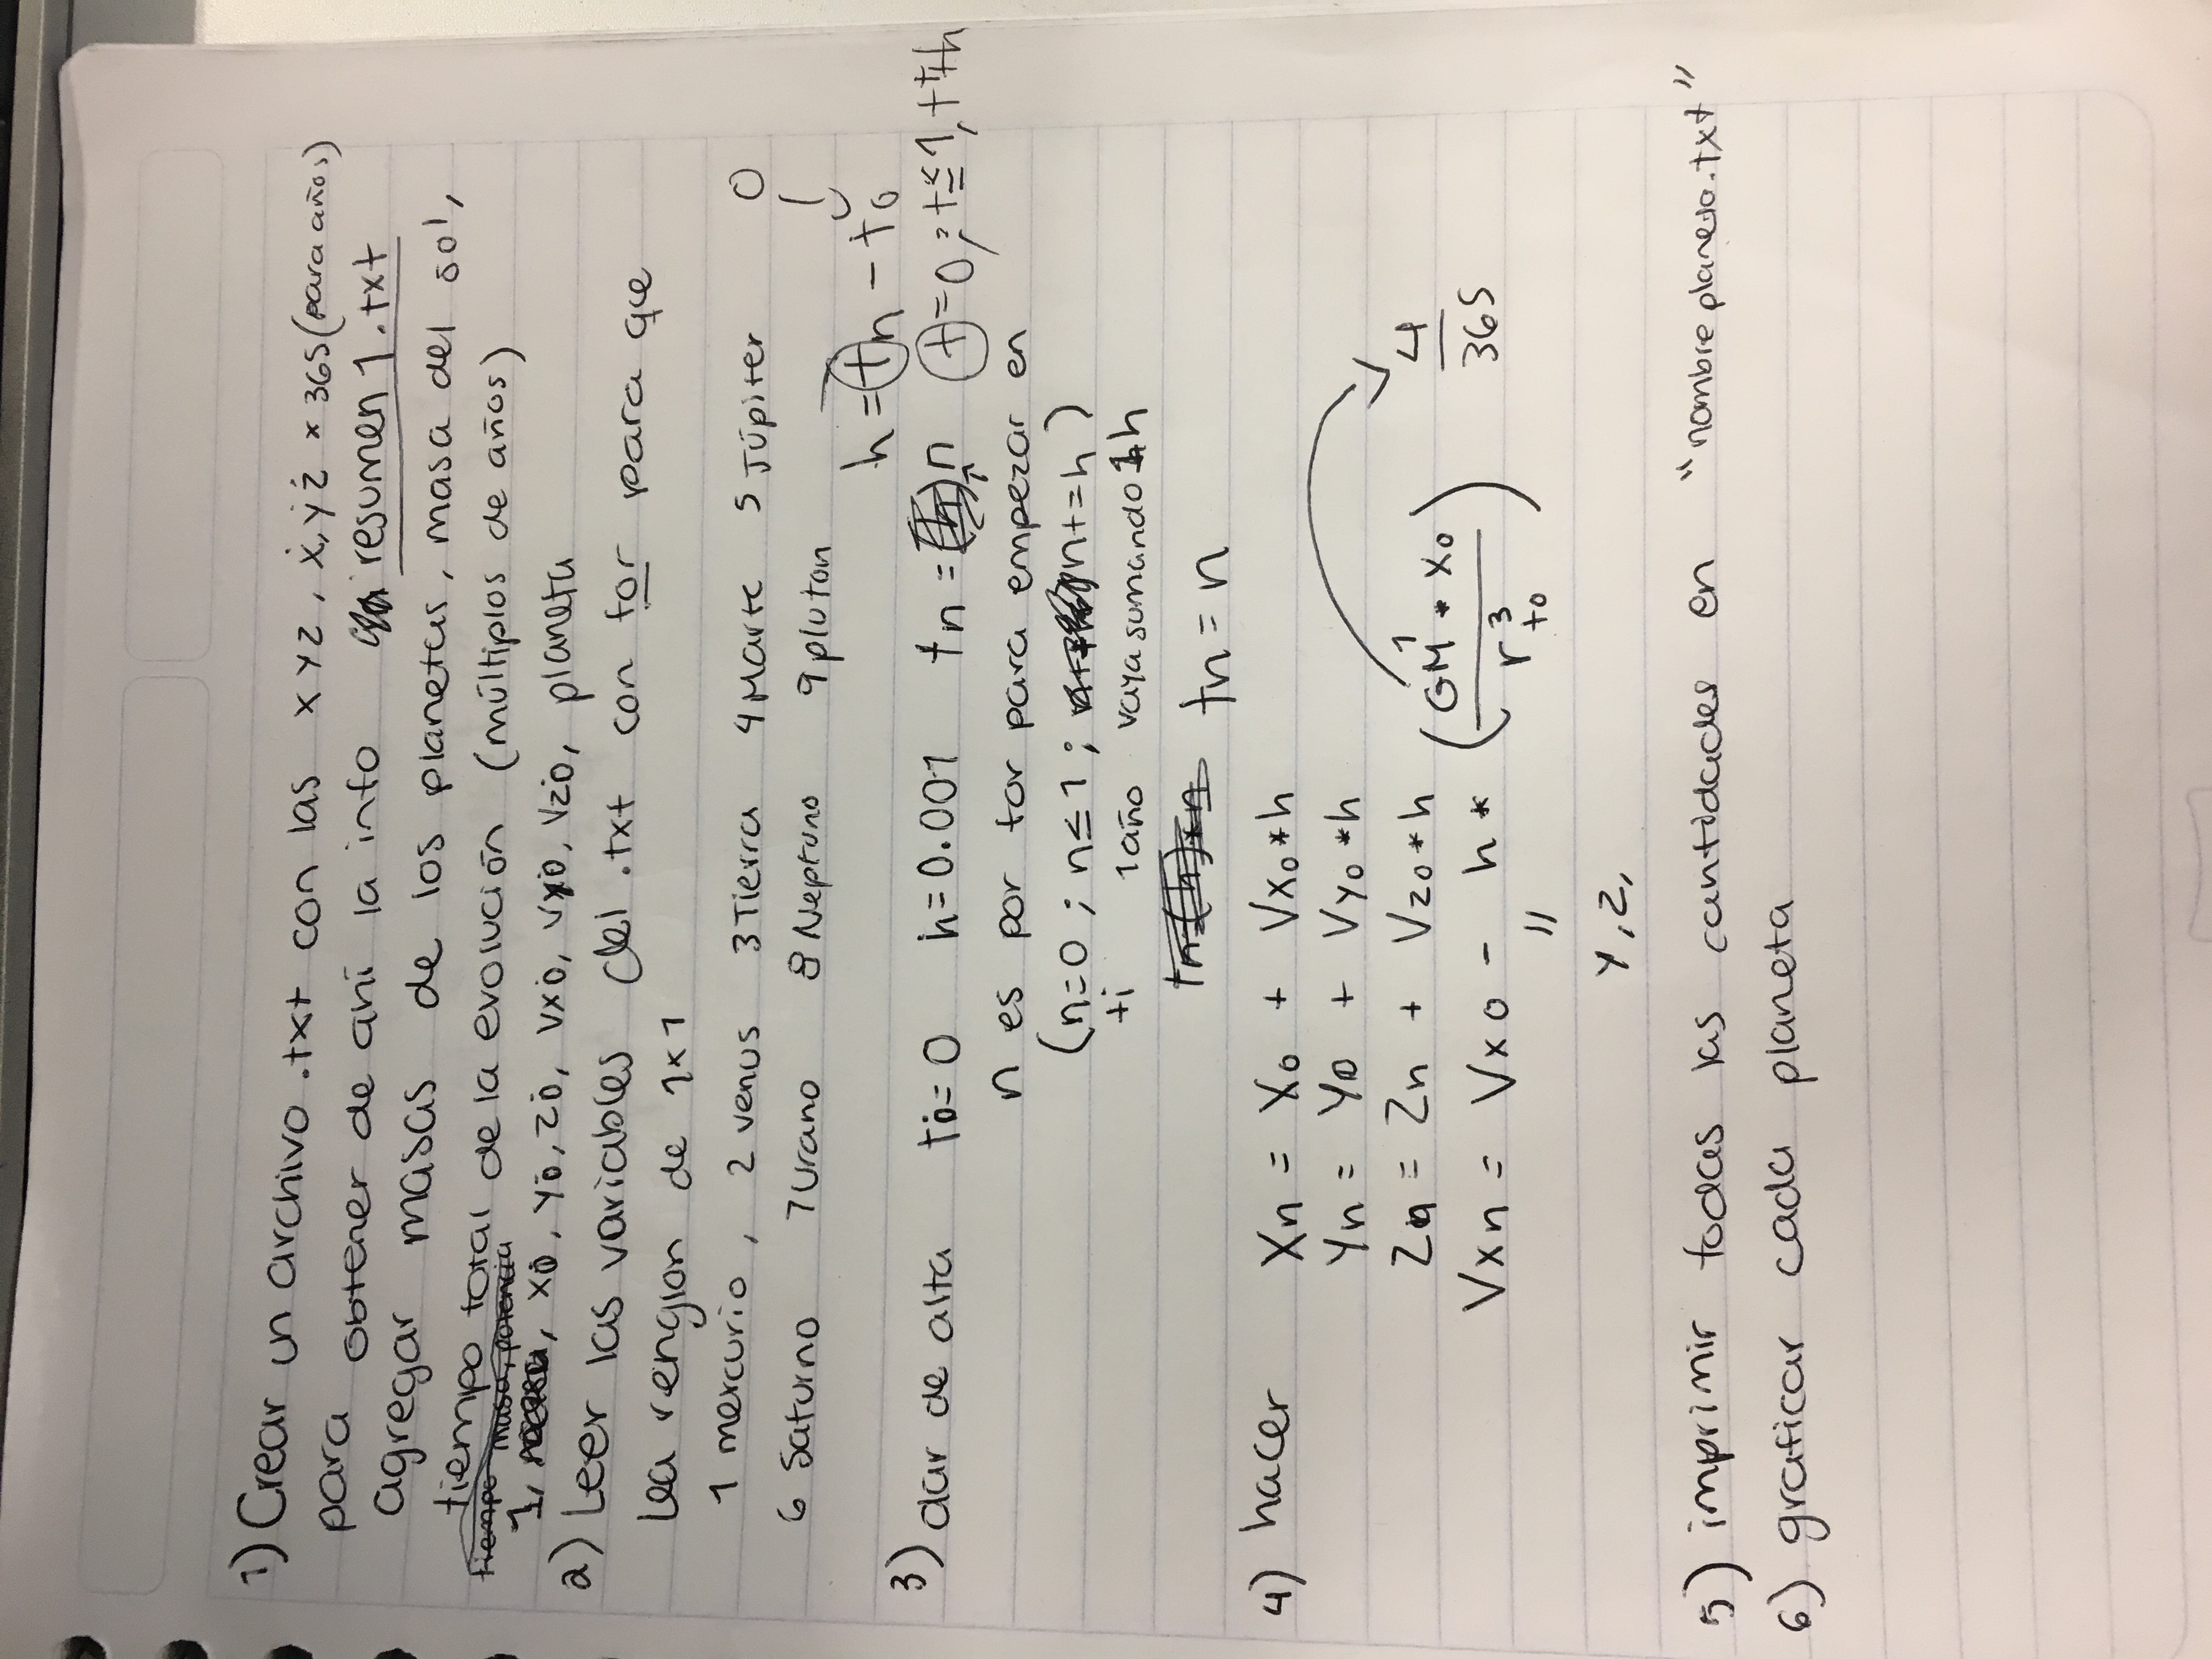 1) Crear un archivo .txt con las x y z, ẋ, ẏ ż * 365 (para años)
para obtener de ahí la info resumen 1.txt
agregar masas de los planetas, masa del sol,
tiempo total de la evolución (múltiplos de años)
tiempo masa, potencia
1, x0, y0, z0, vx0, vy0, vz0, planeta
2) Leer las variables del .txt con for para que
lea renglon de 1x1
1 mercurio, 2 venus 3 Tierra 4 Marte 5 Júpiter 0
6 Saturno 7 Urano 8 Neptuno 9 pluton
h = tn - t0
3) dar de alta t0 = 0 h = 0.001 tn = (h) n t = 0; t ≤ 1, t += h
n es por for para empezar en
(n=0 ; n ≤ 1 ; n+=h )
ti 1 año vaya sumando h
tn=(h)*n tn = n
4) hacer Xn = X0 + Vx0 * h
Yn = Y0 + Vy0 * h
Zn = Zn + Vz0 * h
Vxn = Vx0 - h * (GM¹ * X0 / r³t0) 4/365
"
Y, Z,
5) imprimir todas las cantidades en "nombre planeta.txt"
6) graficar cada planeta